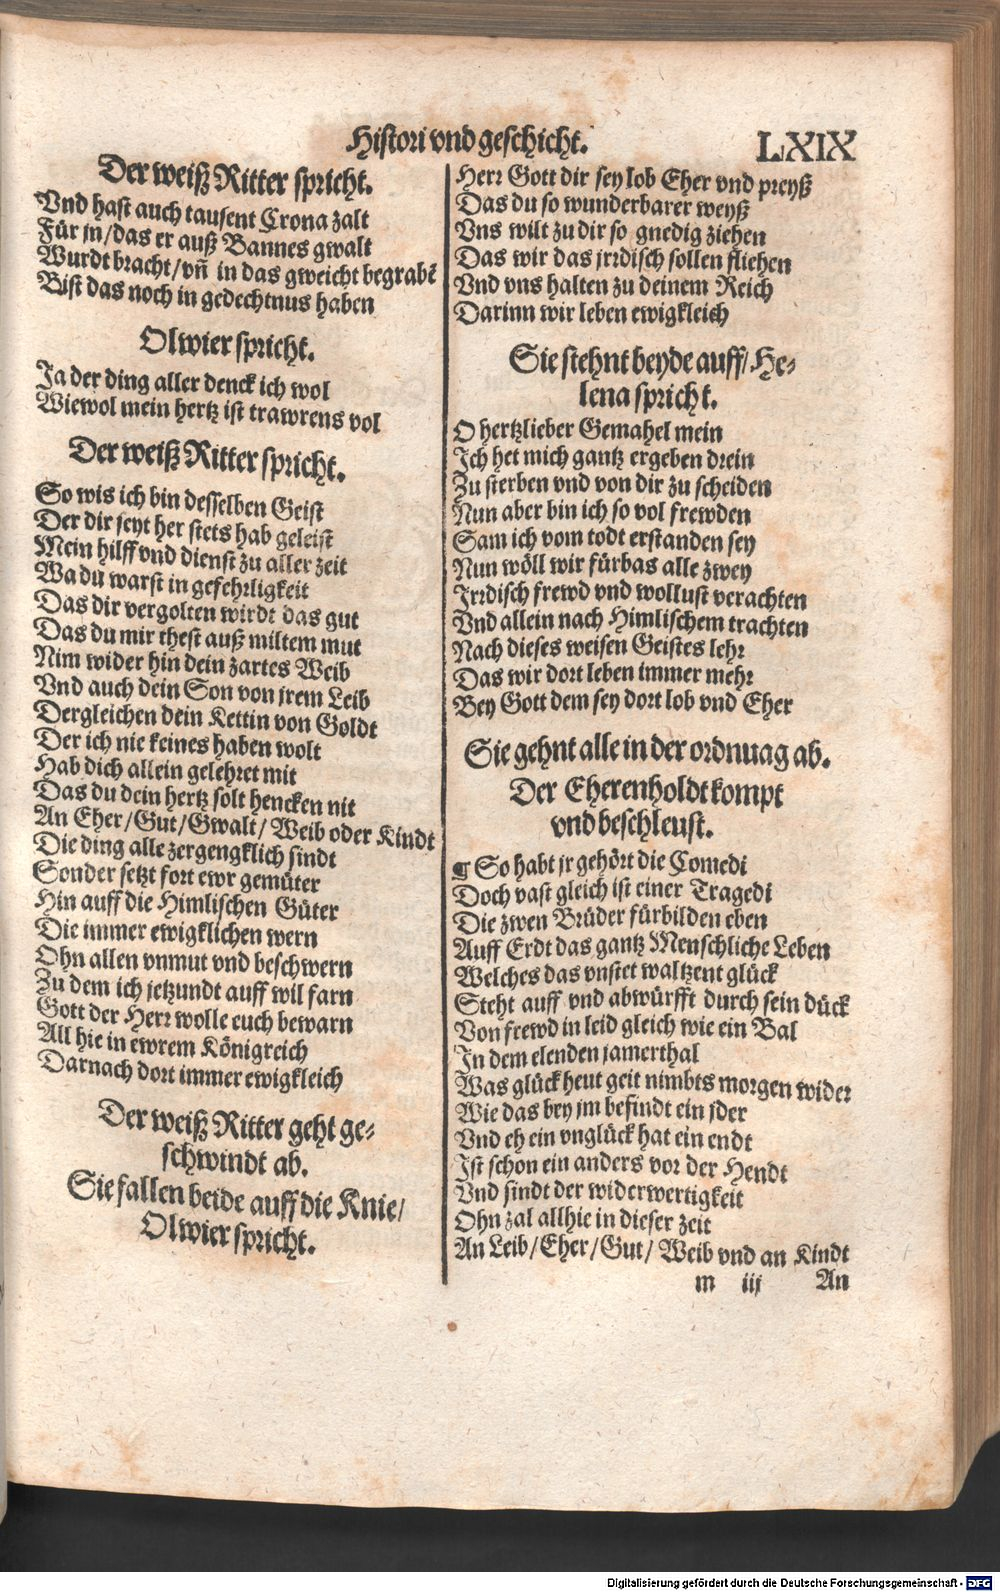 Histori vnd geschicht.
LXIX
Der weiß Ritter spricht.
Vnd hast auch tausent Crona zalt
Für jn/das er auß Bannes gwalt
Wurdt bracht/vñ in das gweicht begrabẽ
Bist das noch in gedechtnus haben
Olwier spricht.
Ja der ding aller denck ich wol
Wiewol mein hertz ist trawrens vol
Der weiß Ritter spricht.
So wis ich bin desselben Geist
Der dir seyt her stets hab geleist
Mein hilff vnd dienst zu aller zeit
Wa du warst in gefehrligkeit
Das dir vergolten wirdt das gut
Das du mir thest auß miltem mut
Nim wider hin dein zartes Weib
Vnd auch dein Son von jrem Leib
Dergleichen dein Kettin von Goldt
Der ich nie keines haben wolt
Hab dich allein gelehret mit
Das du dein hertz solt hencken nit
An Eher/Gut/Gwalt/Weib oder Kindt
Die ding alle zergengklich sindt
Sonder setzt fort ewr gemüter
Hin auff die Himlischen Güter
Die immer ewigklichen wern
Ohn allen vnmut vnd beschwern
Zu dem ich jetzundt auff wil farn
Gott der Herr wolle euch bewarn
All hie in ewrem Königreich
Darnach dort immer ewigkleich
Der weiß Ritter geht ge-
schwindt ab.
Sie fallen beide auff die Knie/
Olwier spricht.
Herr Gott dir sey lob Eher vnd preyß
Das du so wunderbarer weyß
Vns wilt zu dir so gnedig ziehen
Das wir das jrrdisch sollen fliehen
Vnd vns halten zu deinem Reich
Darinn wir leben ewigkleich
Sie stehnt beyde auff/He-
lena spricht.
O hertzlieber Gemahel mein
Ich het mich gantz ergeben drein
Zu sterben vnd von dir zu scheiden
Nun aber bin ich so vol frewden
Sam ich vom todt erstanden sey
Nun wöll wir fürbas alle zwey
Irrdisch frewd vnd wollust verachten
Vnd allein nach Himlischem trachten
Nach dieses weisen Geistes lehr
Das wir dort leben immer mehr
Bey Gott dem sey dort lob vnd Eher
Sie gehnt alle in der ordnuag ab.
Der Eherenholdt kompt
vnd beschleust.
¶ So habt jr gehört die Comedi
Doch vast gleich ist einer Tragedi
Die zwen Brüder fürbilden eben
Auff Erdt das gantz Menschliche Leben
Welches das vnstet waltzent glück
Steht auff vnd abwürfft durch sein dück
Von frewd in leid gleich wie ein Bal
In dem elenden jamerthal
Was glück heut geit nimbts morgen wider
Wie das bey jm befindt ein jder
Vnd eh ein vnglück hat ein endt
Ist schon ein anders vor der Hendt
Vnd sindt der widerwertigkeit
Ohn zal allhie in dieser zeit
An Leib/Eher/Gut/Weib vnd an Kindt
m iij An
Digitalisierung gefördert durch die Deutsche Forschungsgemeinschaft - DFG